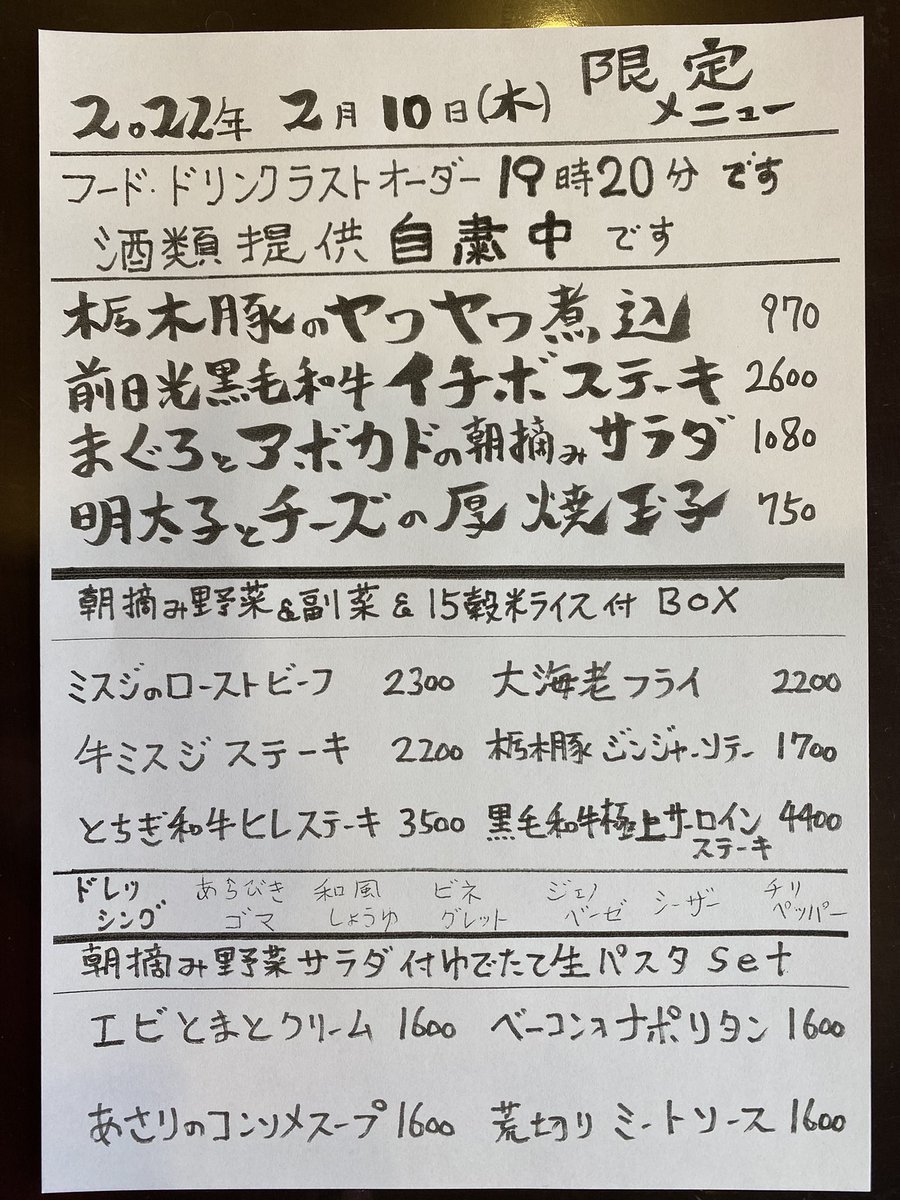 2022年 2月 10日(木) 限定メニュー
フード・ドリンクラストオーダー 19時20分 です
酒類提供 自粛中 です
栃木豚のヤワヤワ煮込 970
前日光黒毛和牛イチボステーキ 2600
まぐろとアボカドの朝摘みサラダ 1080
明太子とチーズの厚焼玉子 750
朝摘み野菜&副菜&15穀米ライス付 BOX
ミスジのローストビーフ 2300 大海老フライ 2200
牛ミスジステーキ 2200 栃木豚ジンジャーソテー 1700
とちぎ和牛ヒレステーキ 3500 黒毛和牛極上サーロインステーキ 4400
ドレッシング あらびきゴマ 和風しょうゆ ビネグレット ジェノベーゼ シーザー チリペッパー
朝摘み野菜サラダ付ゆでたて生パスタ Set
エビとまとクリーム 1600 ベーコンのナポリタン 1600
あさりのコンソメスープ 1600 荒切りミートソース 1600